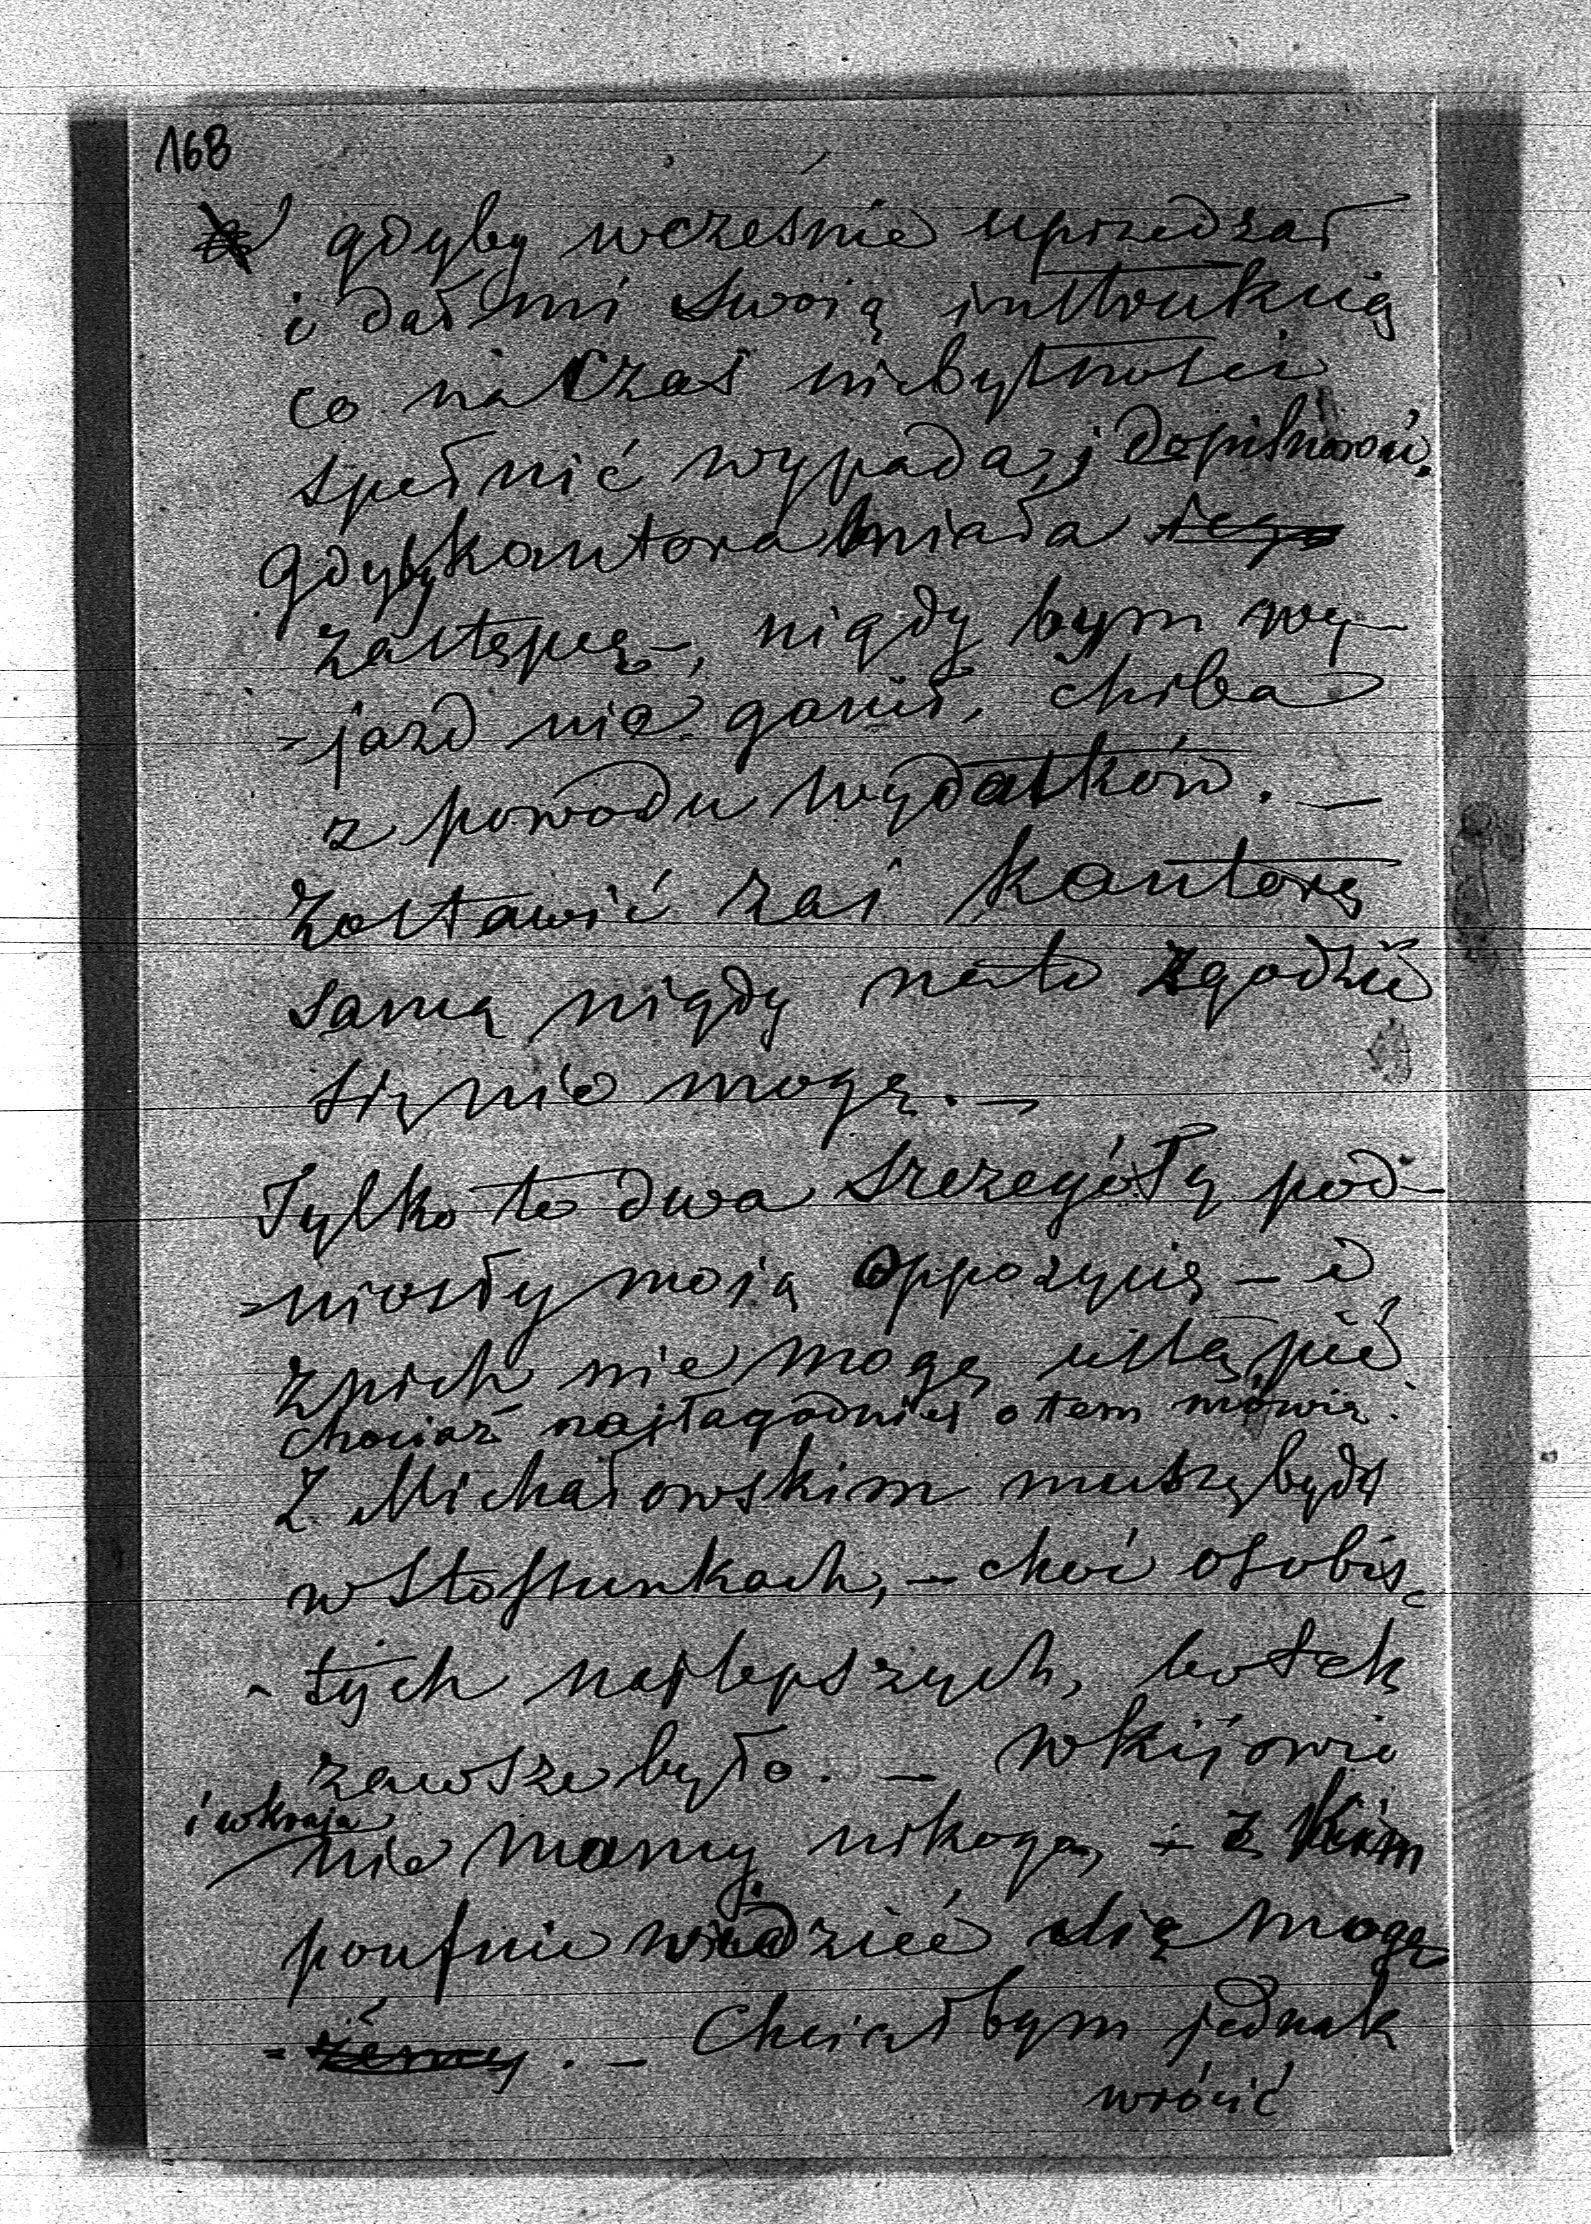 168
gdyby wcześnie uprzedzał
i dał mi swoią instrukcią
co na czas niebytności
spełnić wypada, i dopilnować.
Gdyby kantora miała tego
zastępcę, nigdy bym wy-
=jazd nie ganił, chiba
z powodu wydatków. —
Zostawić zaś kantorę
samą nigdy nato zgodzić
się nie mogę. —
Tylko te dwa szczegóły pod-
=niosły moią oppozycię – i
z nich nie mogę ustąpić
chociaż najłagodniej o tem mówię.
Z Michałowskim muszę być
w stosunkach, – choć osobis-
-tych najlepszych, bo tak
zawsze było. – w Kijowie
i w kraju
nie mamy nikogo, – z kim
poufnie widzieć się mogę
=żemy. – Chciałbym jednak
wrócić